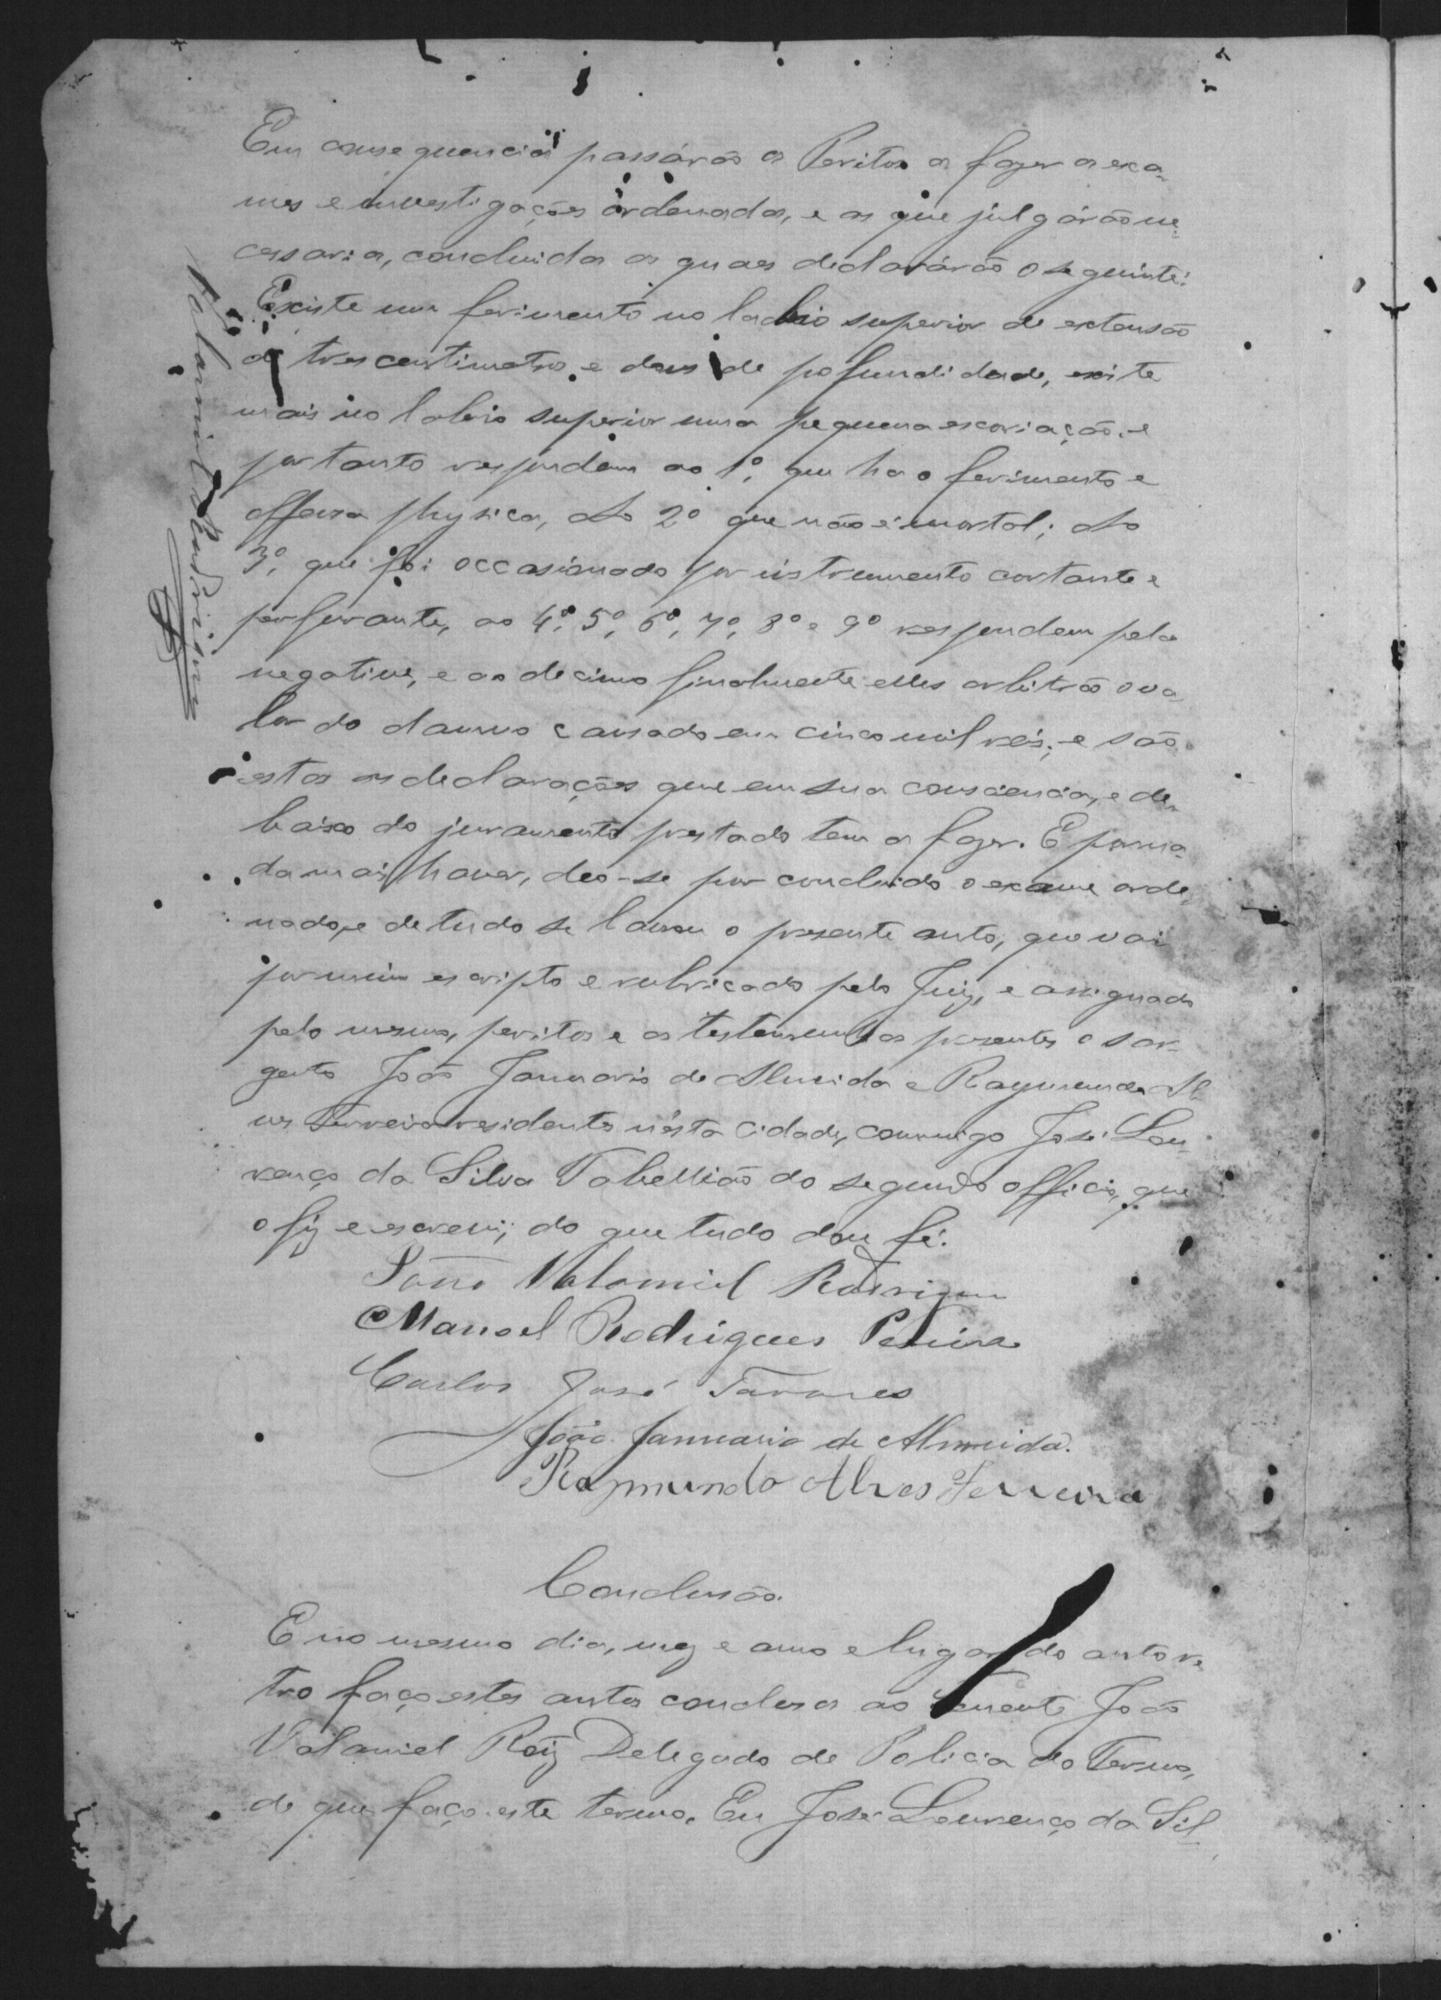 Em consequencia passárão os Peritos a fazer os exa-
mes e investigações ordenadas, e as que julgárão ne-
cessarias, concluidas as quaes declarárão o seguinte:
Existe um ferimento no labio superior de extensão
de tres centimetros e dous de pofundidade, existe
mais no labio superior uma pequena escoriação, e
portanto respondem ao 1º, que ha o ferimento e
offensa physica, Ao 2º que não é mortal; Ao
3º, que foi occasionado por instrumento cortante e
perfurante, ao 4º, 5º, 6º, 7º, 8º e 9º respondem pela
negativa, e ao decimo finalmente elles arbitrão o va-
lor do damno causado em cinco mil reis; e são
estas as declarações que em sua consciencia, e de-
baixo do juramento prestado tem a fazer. E por na-
da mais haver, deo-se por concluido o exame orde-
nado, e de tudo se lavrou o presente auto, que vai
por mim escripto e rubricado pelo Juiz, e assignado
pelo mesmo, peritos e as testemunhas presentes o sar-
gento João Januario de Almeida e Raymundo Al-
ves Ferreira residentes nésta cidade, commigo José Lou-
renço da Silva Tabellião do segundo officio, que
o fiz e escrevi; do que tudo dou fé.
João Valamiel Rodrigues
Manoel Rodrigues Pereira
Carlos José Tavares
João Januario de Almeida.
Raymundo Alves Ferreira
Conclusão.
E no mesmo dia, mez e anno e lugar do auto re-
tro faço estes autos conclusos ao Tenente João
Valamiel Roiz Delegado de Policia do Termo,
de que faço este termo. Eu José Lourenço da Sil-
Valamiel Rodrigues